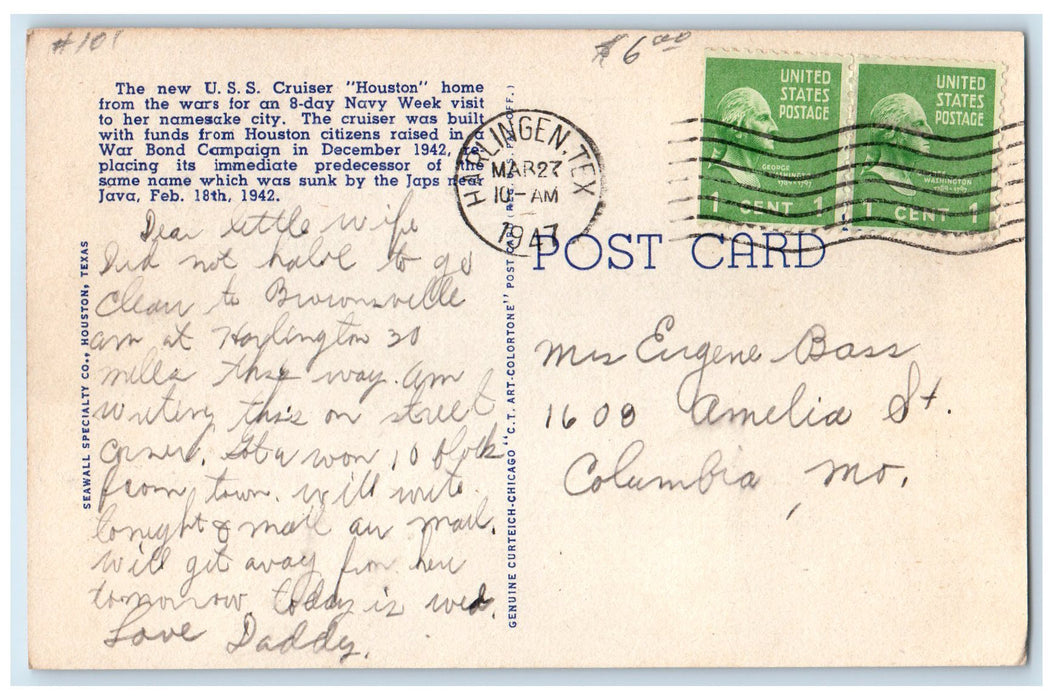 #101
$6.00
The new U. S. S. Cruiser "Houston" home
from the wars for an 8-day Navy Week visit
to her namesake city. The cruiser was built
with funds from Houston citizens raised in a
War Bond Campaign in December 1942, re-
placing its immediate predecessor of the
same name which was sunk by the Japs near
Java, Feb. 18th, 1942.
Dear little wife
Did not have to go
Clear to Brownsville
am at Harlington 30
miles this way. am
writing this on street
corner. Got a won 10 block
from town. will write
tonight & mail air mail.
will get away from here
tomorrow. today is wed.
Love Daddy.
SEAWALL SPECIALTY CO., HOUSTON, TEXAS
GENUINE CURTEICH-CHICAGO "C.T. ART-COLORTONE" POST CARD (REG. U.S. PAT. OFF.)
HARLINGEN, TEX
MAR 27
10-AM
1947
UNITED
STATES
POSTAGE
GEORGE
WASHINGTON
1 CENT 1
UNITED
STATES
POSTAGE
WASHINGTON
1 CENT 1
POST CARD
Mrs Eugene Bass
1608 Amelia St.
Columbia Mo.